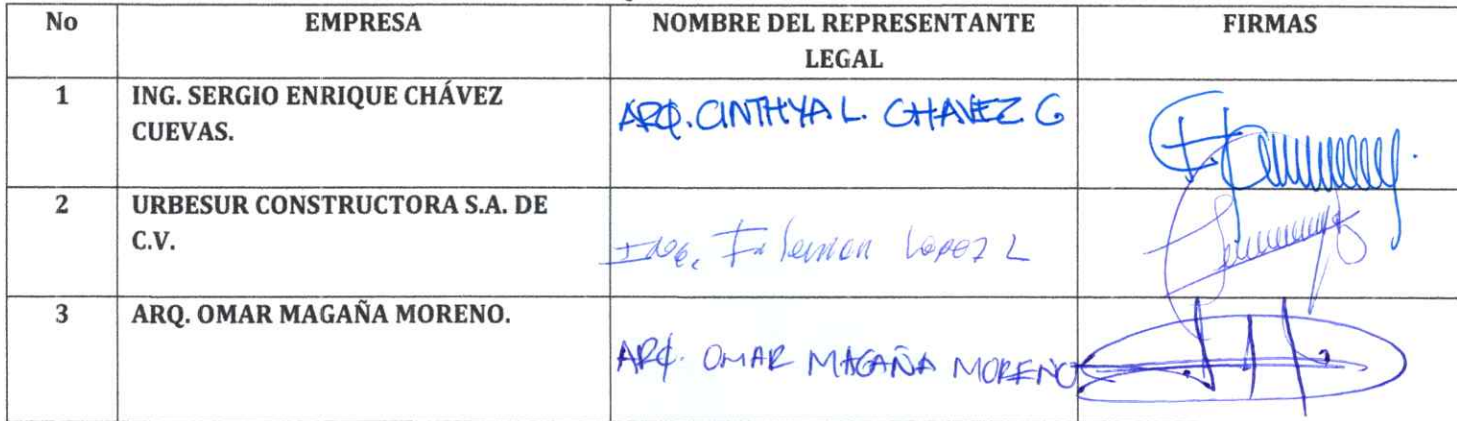 No EMPRESA NOMBRE DEL REPRESENTANTE FIRMAS
LEGAL
1 ING. SERGIO ENRIQUE CHÁVEZ ARQ. CINTHYA L. CHAVEZ G
CUEVAS.
2 URBESUR CONSTRUCTORA S.A. DE
C.V. Ing. Lopez L
3 ARQ. OMAR MAGAÑA MORENO.
ARQ. OMAR MAGAÑA MORENO